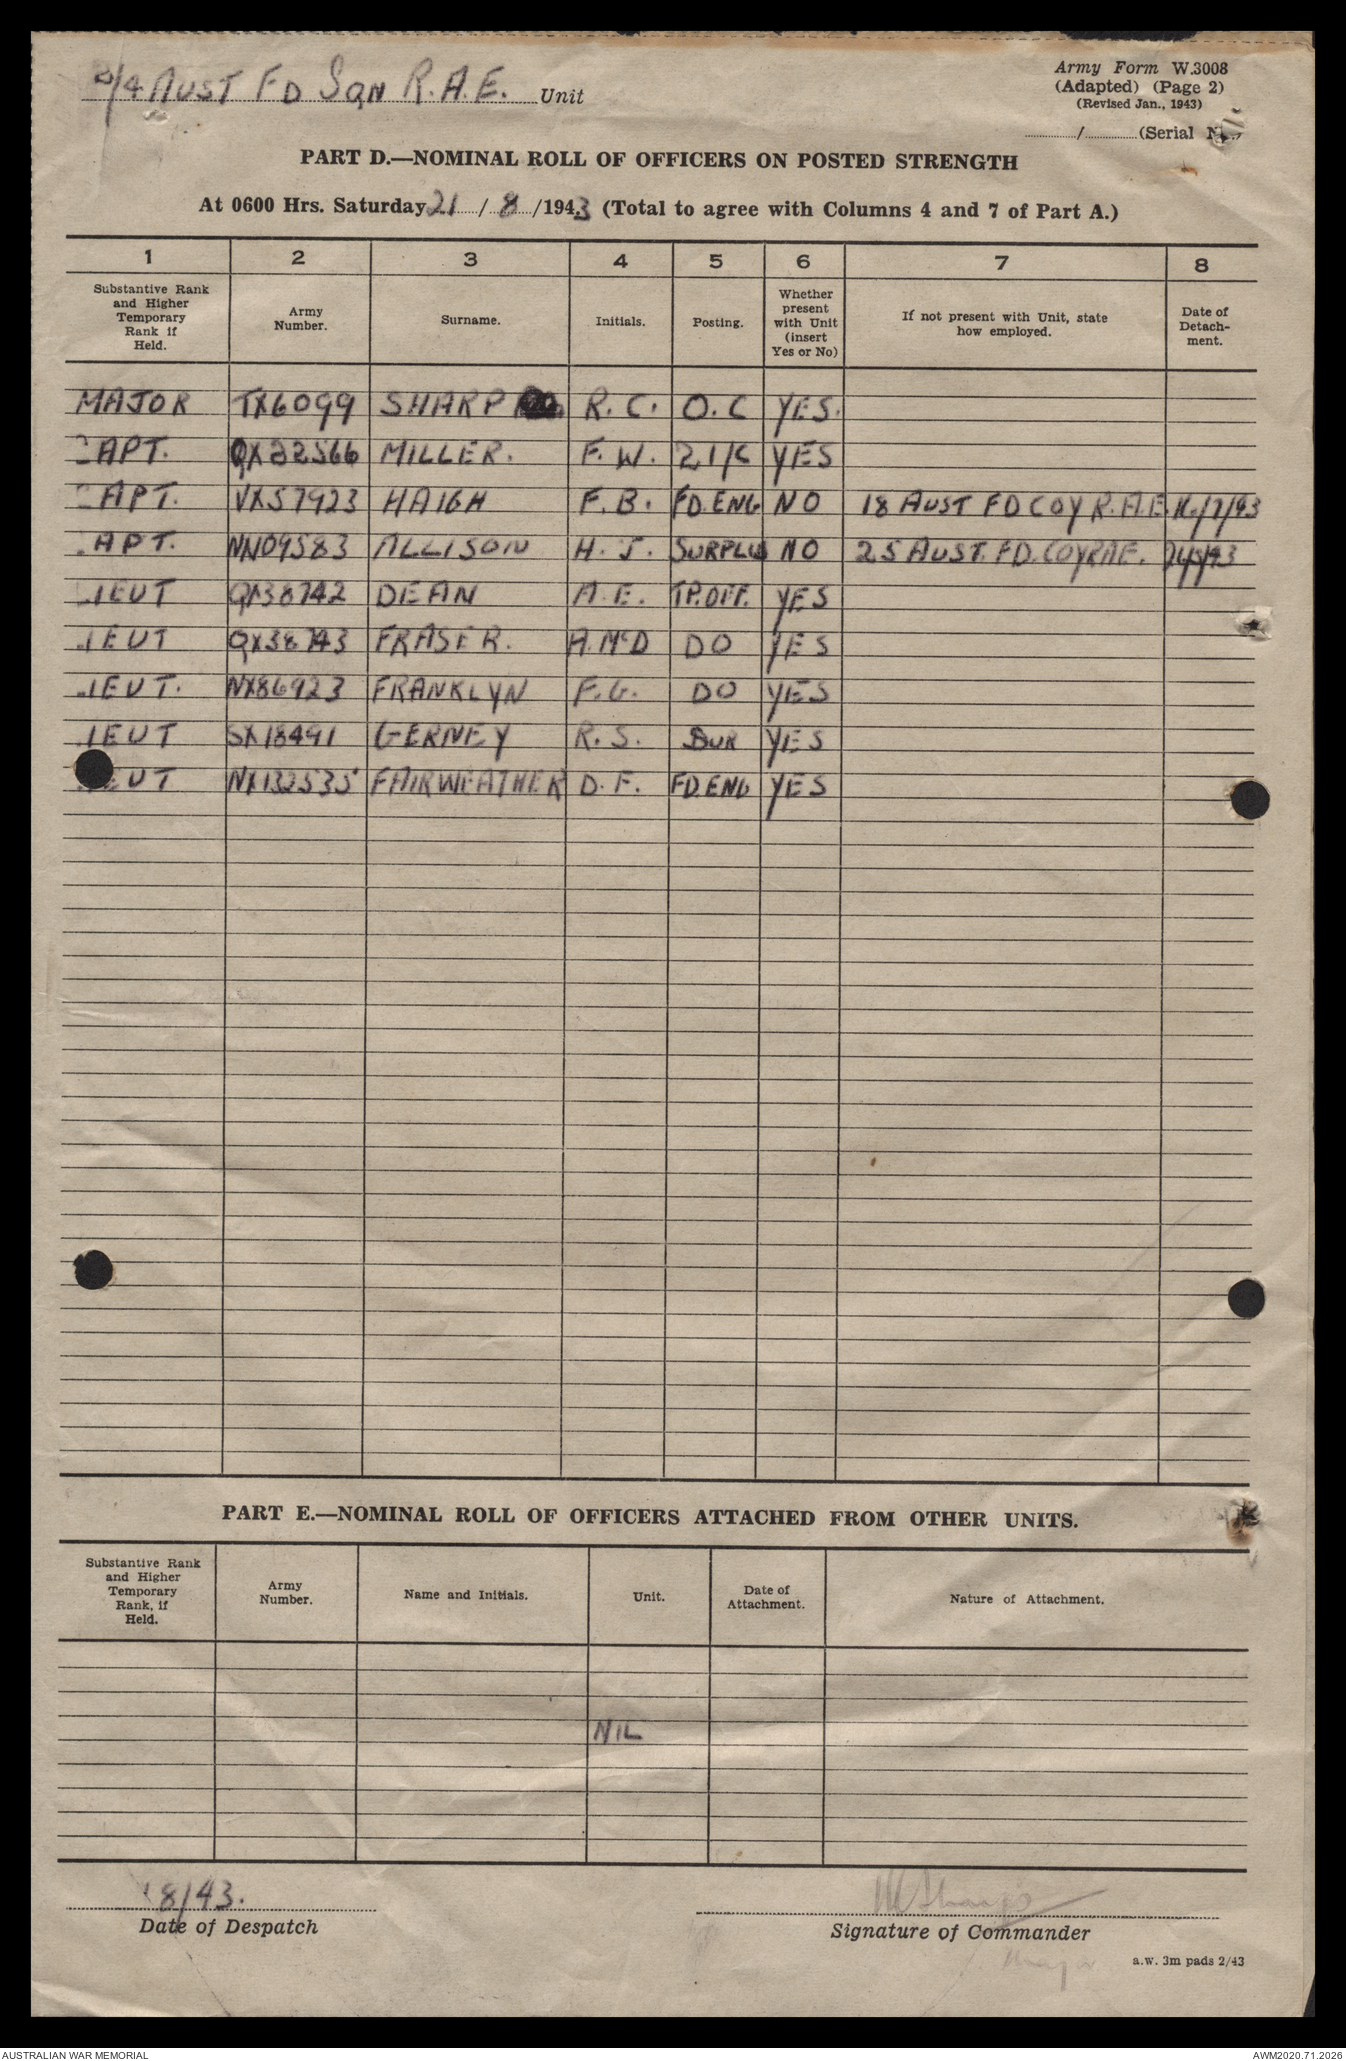 2/4 AUST FD SQN R.A.E. Unit
Army Form W.3008
(Adapted) (Page 2)
(Revised Jan., 1943)
/ (Serial
PART D.—NOMINAL ROLL OF OFFICERS ON POSTED STRENGTH
At 0600 Hrs. Saturday 21 / 8 /1943 (Total to agree with Columns 4 and 7 of Part A.)
1 2 3 4 5 6 7 8
Substantive Rank and Higher Temporary Rank if Held. Army Number. Surname. Initials. Posting. Whether present with Unit (insert Yes or No) If not present with Unit, state how employed. Date of Detach-ment.
MAJOR TX6099 SHARP R.C. O.C YES.
CAPT. QX22566 MILLER. F.W. 2I/C YES
CAPT. VX57923 HAIGH F.B. FD.ENG NO 18 AUST FD COY R.A.E. 16/7/43
CAPT. ALLISON H.J. SURPLUS NO 25 AUST. FD. COY RAE.
LIEUT QX38742 DEAN A.E. TP.OFF. YES
LIEUT QX38743 FRASER. A.McD DO YES
LIEUT. NX86923 FRANKLYN F.G. DO YES
LIEUT SX18491 GERNEY R.S. YES
LIEUT NX132535 FAIRWEATHER D.F. FD.ENG YES
PART E.—NOMINAL ROLL OF OFFICERS ATTACHED FROM OTHER UNITS.
Substantive Rank and Higher Temporary Rank, if Held. Army Number. Name and Initials. Unit. Date of Attachment. Nature of Attachment.
NIL
8/43.
Date of Despatch
Signature of Commander
Major
a.w. 3m pads 2/43
AUSTRALIAN WAR MEMORIAL
AWM2020.71.2026